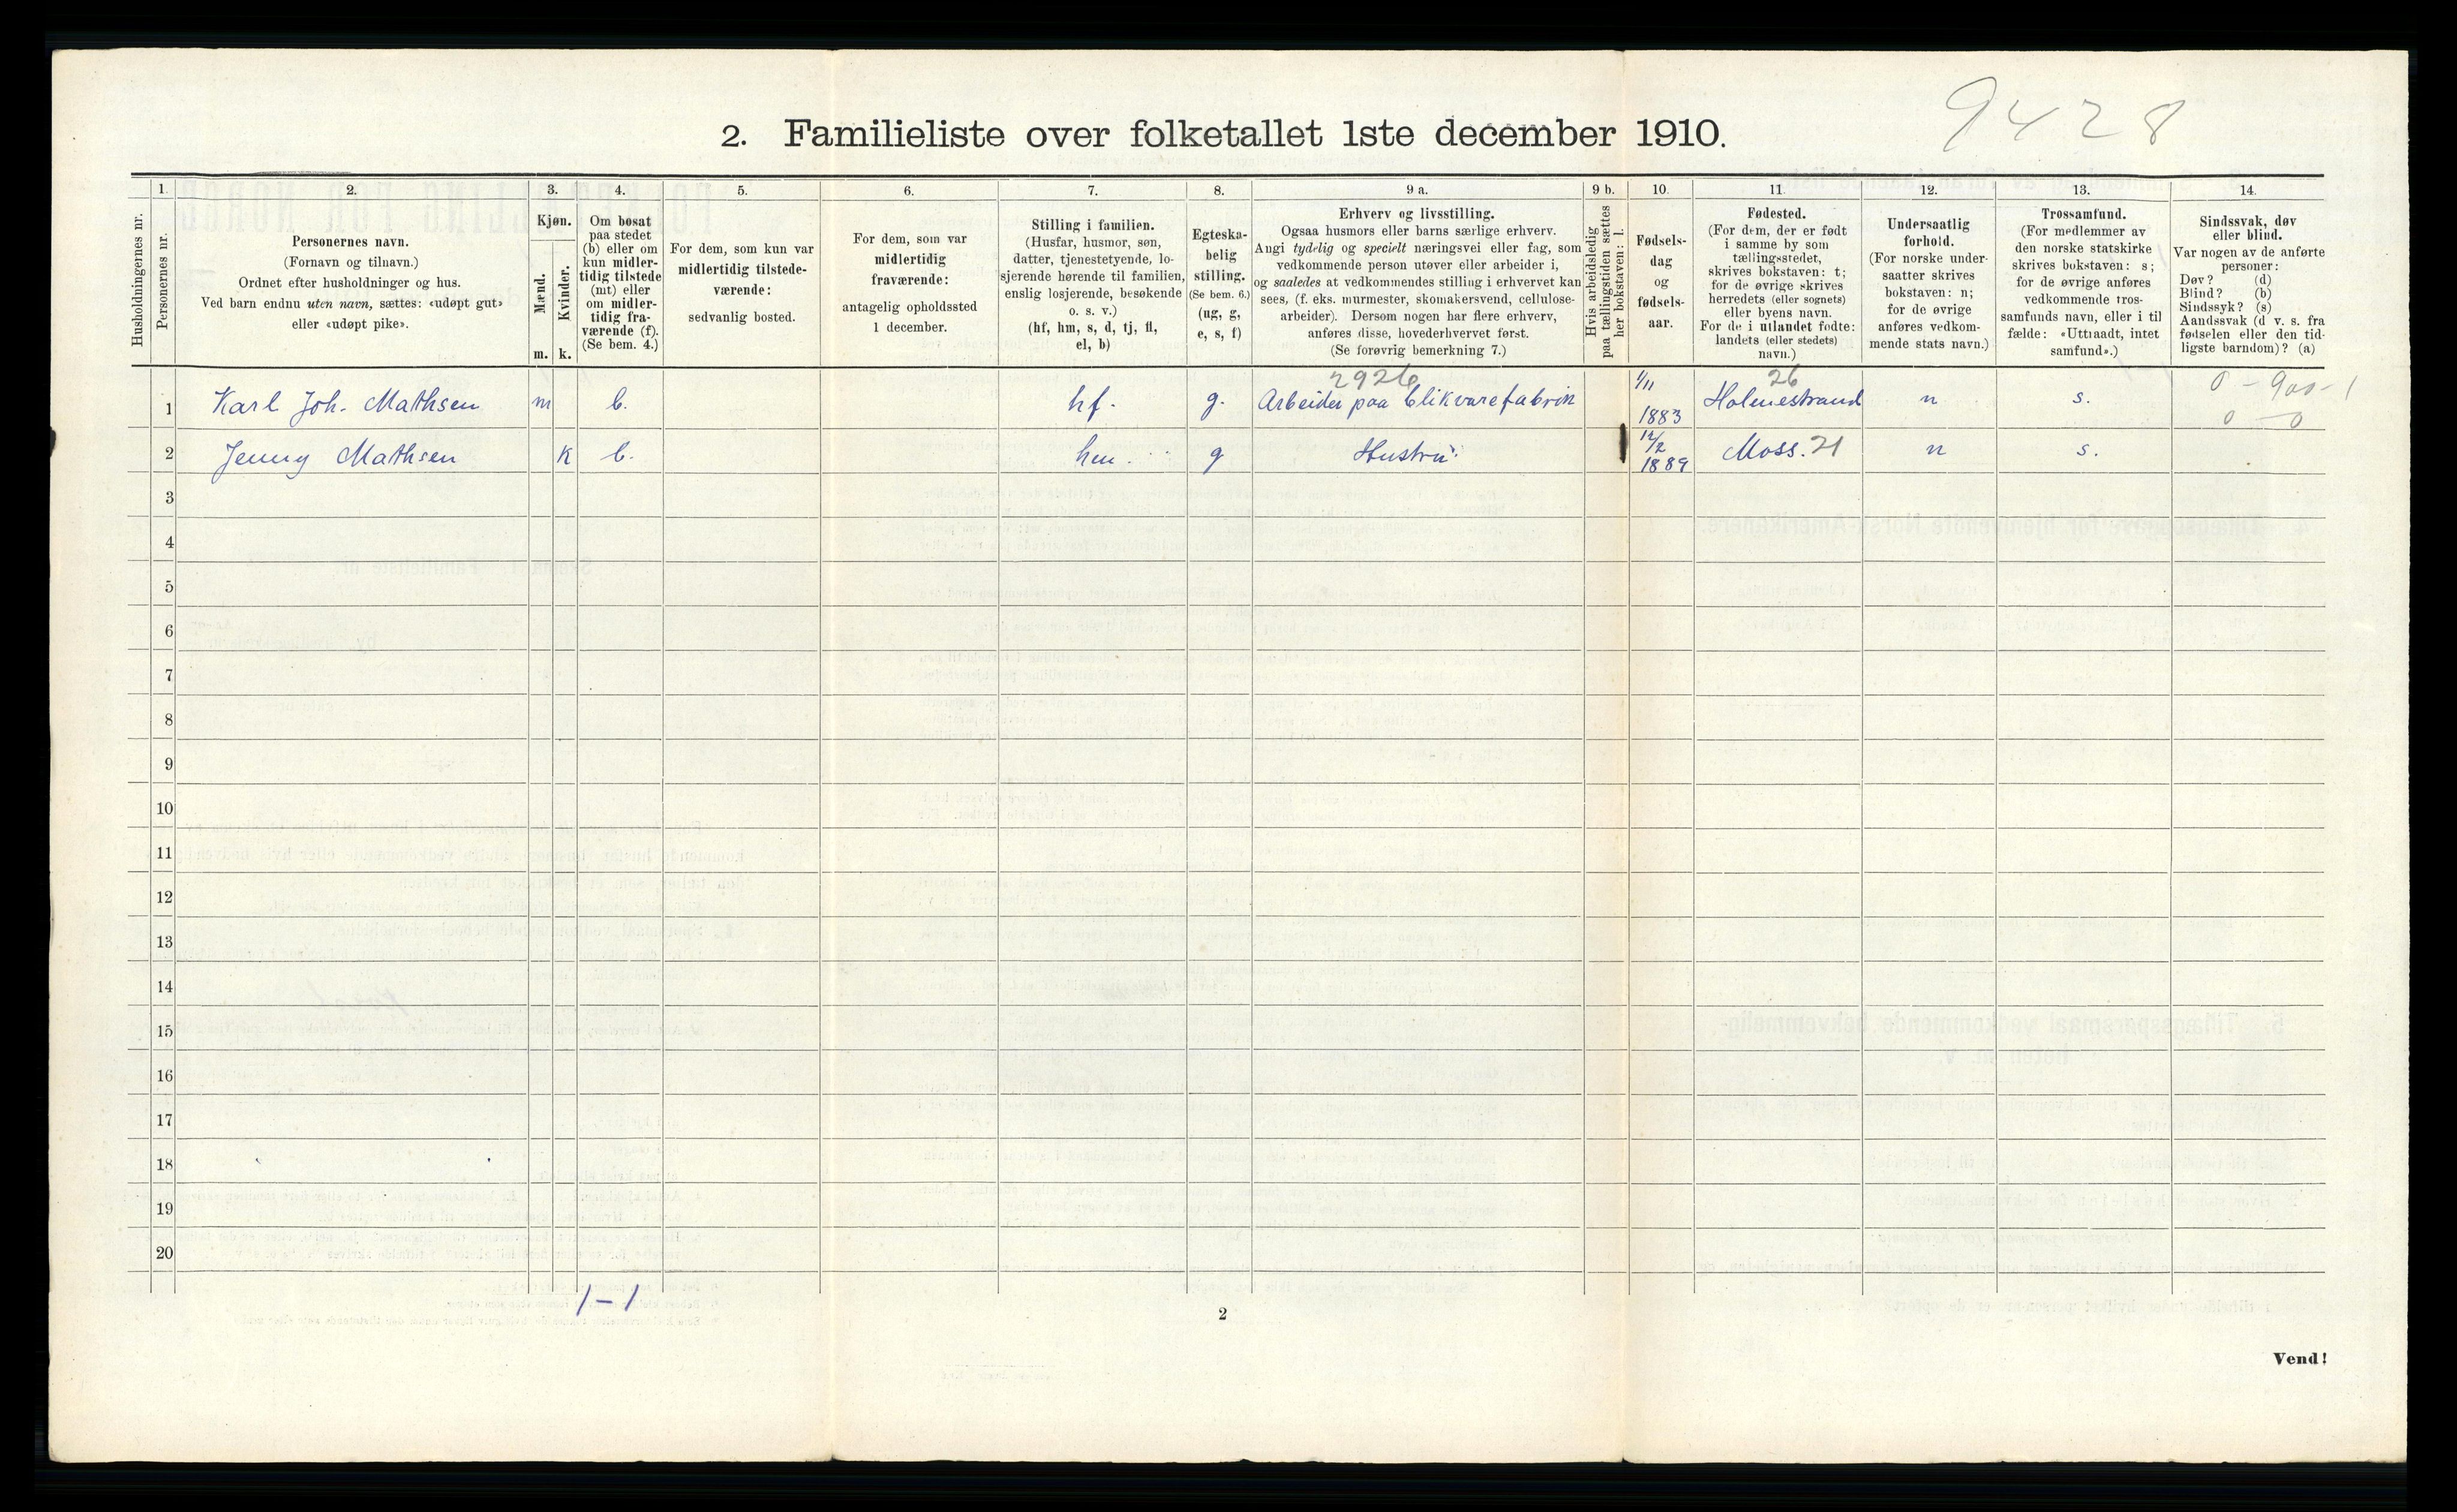 9428
2. Familieliste over folketallet 1ste december 1910.
Husholdningernes nr.
1.
Personernes nr.
2.
Personernes navn.
(Fornavn og tilnavn.)
Ordnet efter husholdninger og hus.
Ved barn endnu uten navn, sættes: «udøpt gut»
eller «udøpt pike».
3.
Kjøn.
Mænd.
Kvinder.
m. k.
4.
Om bosat
paa stedet
(b) eller om
kun midler-
tidig tilstede
(mt) eller
om midler-
tidig fra-
værende (f).
(Se bem. 4.)
5.
For dem, som kun var
midlertidig tilstede-
værende:
sedvanlig bosted.
6.
For dem, som var
midlertidig
fraværende:
antagelig opholdssted
1 december.
7.
Stilling i familien.
(Husfar, husmor, søn,
datter, tjenestetyende, lo-
sjerende hørende til familien,
enslig losjerende, besøkende
o. s. v.)
(hf, hm, s, d, tj, fl,
el, b)
8.
Egteska-
belig
stilling.
(Se bem. 6.)
(ug, g,
e, s, f)
9 a.
Erhverv og livsstilling.
Ogsaa husmors eller barns særlige erhverv.
Angi tydelig og specielt næringsvei eller fag, som
vedkommende person utøver eller arbeider i,
og saaledes at vedkommendes stilling i erhvervet kan
sees, (f. eks. murmester, skomakersvend, cellulose-
arbeider). Dersom nogen har flere erhverv,
anføres disse, hovederhvervet først.
(Se forøvrig bemerkning 7.)
9 b.
Hvis arbeidsledig
paa tællingstiden sættes
her bokstaven: l.
10.
Fødsels-
dag
og
fødsels-
aar.
11.
Fødested.
(For dem, der er født
i samme by som
tællingsstedet,
skrives bokstaven: t;
for de øvrige skrives
herredets (eller sognets)
eller byens navn.
For de i utlandet fødte:
landets (eller stedets)
navn.)
12.
Undersaatlig
forhold.
(For norske under-
saatter skrives
bokstaven: n;
for de øvrige
anføres vedkom-
mende stats navn.)
13.
Trossamfund.
(For medlemmer av
den norske statskirke
skrives bokstaven: s;
for de øvrige anføres
vedkommende tros-
samfunds navn, eller i til
fælde: «Uttraadt, intet
samfund».)
14.
Sindssvak, døv
eller blind.
Var nogen av de anførte
personer:
Døv? (d)
Blind? (b)
Sindssyk? (s)
Aandssvak (d v. s. fra
fødselen eller den tid-
ligste barndom)? (a)
2926 1/11 26 0 - 900 - 1
1 Karl Joh. Mathsen m b. hf. g. Arbeider paa blikvarefabrik 1883 Holmestrand n s. 0 - 0
2 Jenny Mathsen k b. hm. g Hustru 12/2 1889 Moss. 21 n s.
3
4
5
6
7
8
9
10
11
12
13
14
15
16
17
18
19
20
1 - 1
2
Vend!